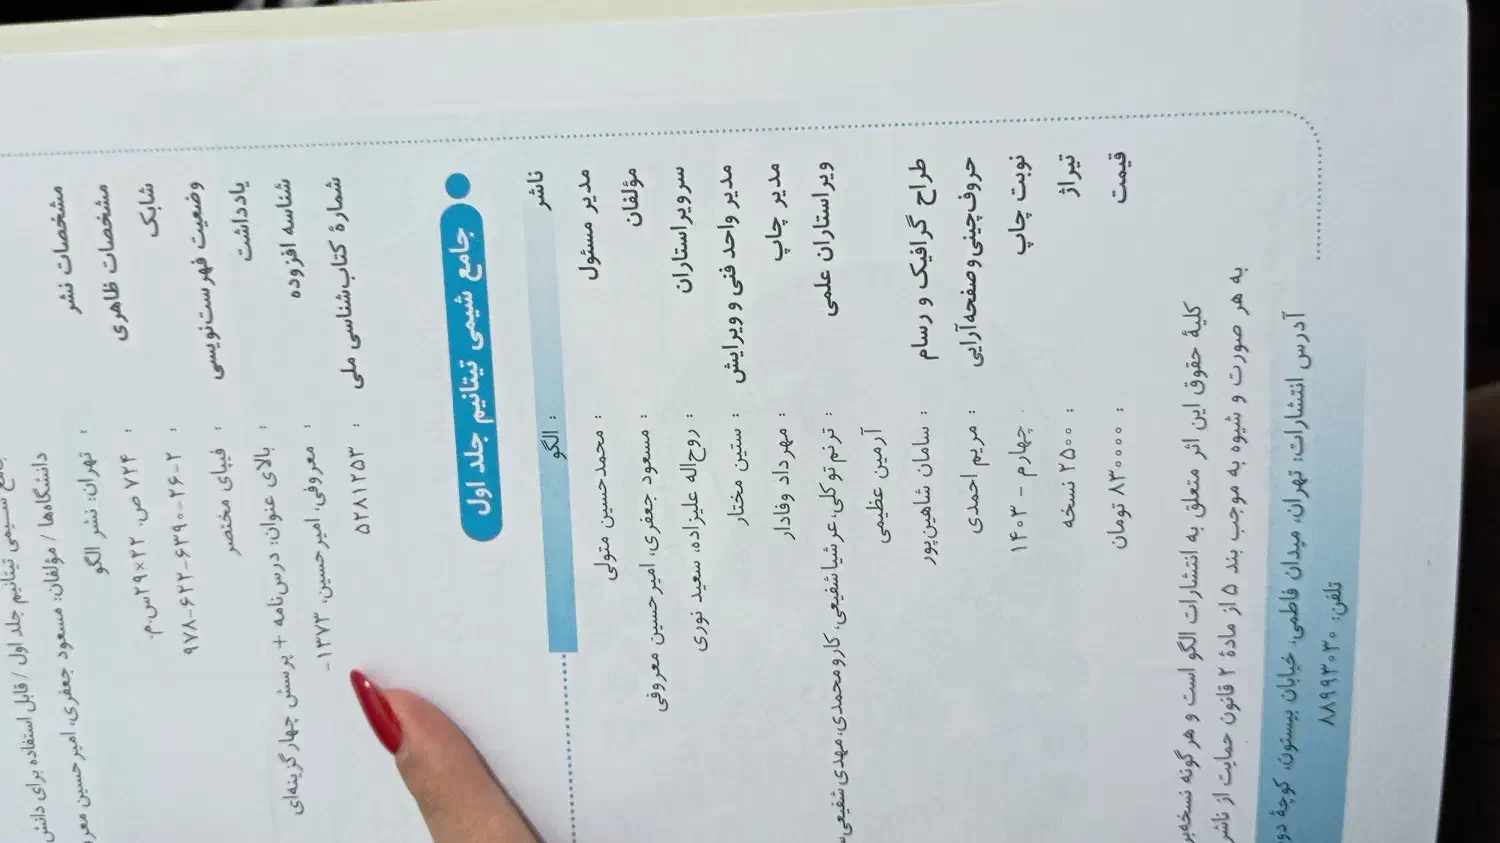 جامع شیمی تیتانیم جلد اول / قابل استفاده برای دانش
دانشگاه‌ها / مؤلفان: مسعود جعفری، امیرحسین معرو
مشخصات نشر : تهران: نشر الگو
مشخصات ظاهری : ۷۲۴ ص. ۲۲×۲۹س.م.
شابک : ۹۷۸-۶۲۲-۶۳۹۰-۲۶-۲
وضعیت فهرست‌نویسی : فیپای مختصر
یادداشت : بالای عنوان: درس‌نامه + پرسش چهارگزینه‌ای
شناسه افزوده : معروفی، امیرحسین، ۱۳۷۳-
شمارهٔ کتاب‌شناسی ملی : ۵۲۸۱۲۵۳
جامع شیمی تیتانیم جلد اول
ناشر : الگو
مدیر مسئول : محمدحسین متولی
مؤلفان : مسعود جعفری، امیرحسین معروفی
سرویراستاران : روح‌اله علیزاده، سعید نوری
مدیر واحد فنی و ویرایش : ستین مختار
مدیر چاپ : مهرداد وفادار
ویراستاران علمی : ترنم توکلی، عرشیا شفیعی، کارو محمدی، مهدی شفیعی،
آرمین عظیمی
طراح گرافیک و رسام : سامان شاهین‌پور
حروف‌چینی و صفحه‌آرایی : مریم احمدی
نوبت چاپ : چهارم - ۱۴۰۳
تیراژ : ۲۵۰۰ نسخه
قیمت : ۸۳۰۰۰۰ تومان
کلیهٔ حقوق این اثر متعلق به انتشارات الگو است و هرگونه نسخه‌بر
به هر صورت و شیوه به موجب بند ۵ از مادهٔ ۲ قانون حمایت از ناشر
آدرس انتشارات: تهران، میدان فاطمی، خیابان بیستون، کوچهٔ دو
تلفن: ۸۸۹۹۳۰۳۰